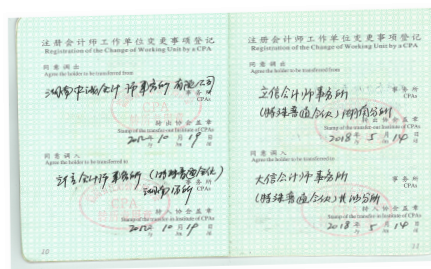 注册会计师工作单位变更事项登记
Registration of the Change of Working Unit by a CPA
同意调出
Agree the holder to be transferred from
事务所
CPAs
转出协会盖章
Stamp of the transfer-out Institute of CPAs
10月19日
同意调入
Agree the holder to be transferred to
事务所
CPAs
转入协会盖章
Stamp of the transfer-in Institute of CPAs
10月19日
10
注册会计师工作单位变更事项登记
Registration of the Change of Working Unit by a CPA
同意调出
Agree the holder to be transferred from
立信会计师事务所
事务所
CPAs
(特殊普通合伙)湖南分所
转出协会盖章
Stamp of the transfer-out Institute of CPAs
2018年5月14日
同意调入
Agree the holder to be transferred to
大信会计师事务所
事务所
CPAs
(特殊普通合伙)长沙分所
转入协会盖章
Stamp of the transfer-in Institute of CPAs
2018年5月14日
11